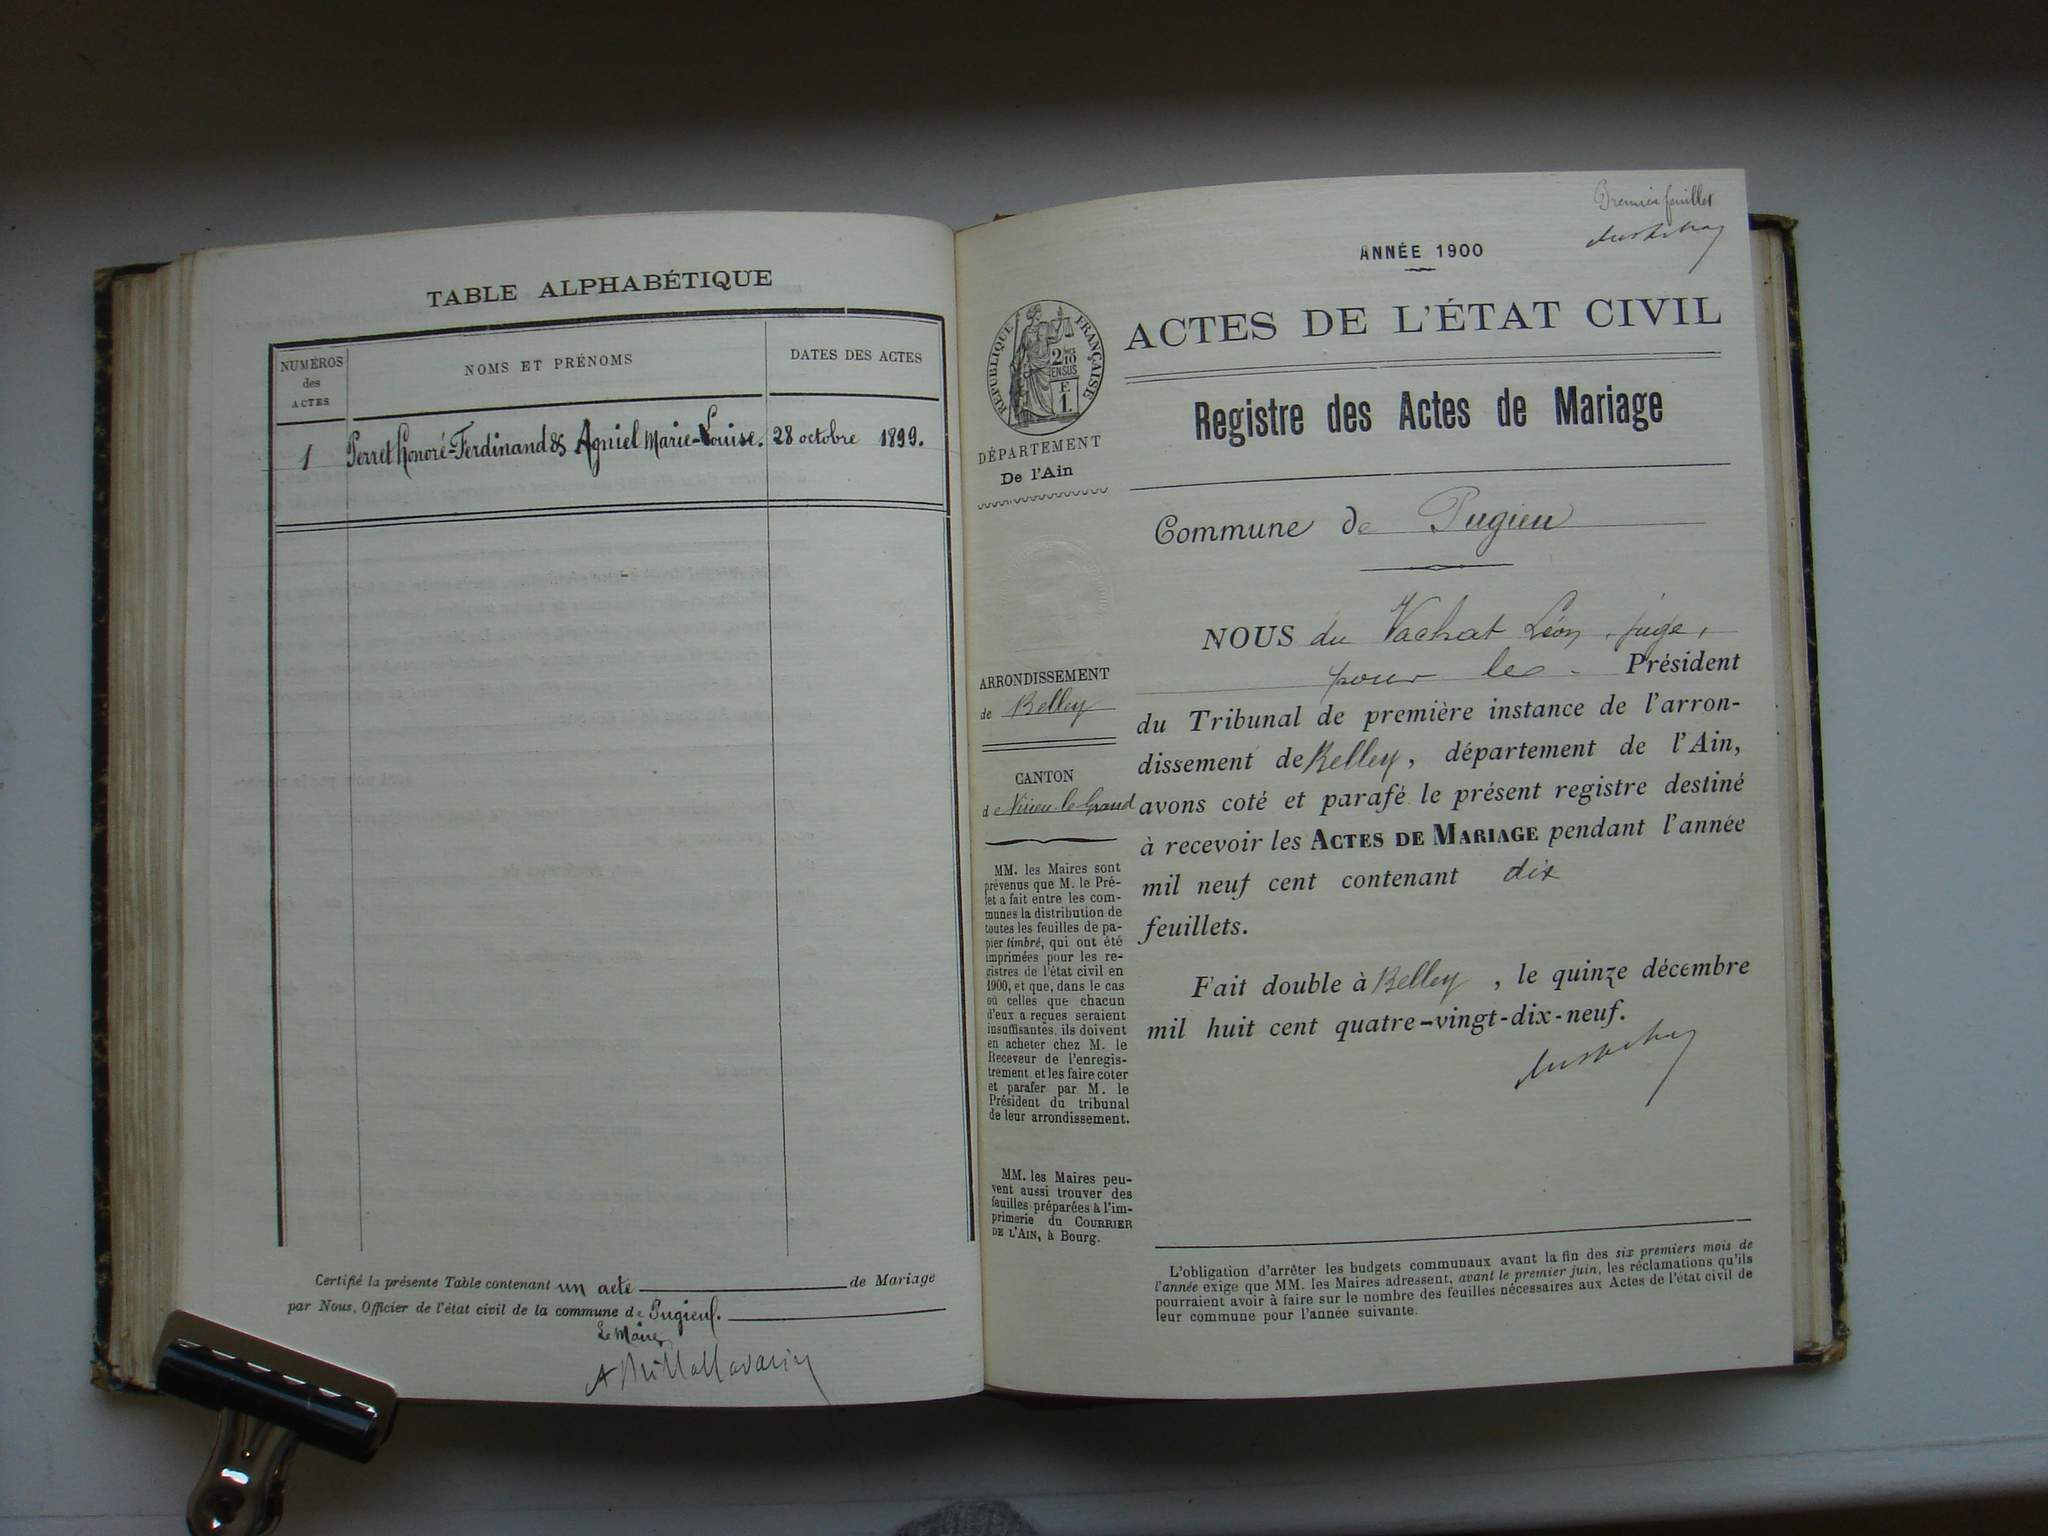 TABLE ALPHABÉTIQUE
NUMÉROS
des
ACTES
NOMS ET PRÉNOMS
DATES DES ACTES
1 Perret Honoré-Ferdinand & Agniel Marie-Louise. 28 octobre 1899.
Certifié la présente Table contenant un acte de Mariage
par Nous, Officier de l'état civil de la commune de Pugieu.
Le Maire
Premier feuillet
ANNÉE 1900
ACTES DE L'ÉTAT CIVIL
Registre des Actes de Mariage
RÉPUBLIQUE FRANÇAISE
2/10
EN SUS
F
1.
DÉPARTEMENT
De l'Ain
Commune de Pugieu
NOUS du Vachat Léon, juge,
pour le Président
du Tribunal de première instance de l'arron-
dissement de Belley, département de l'Ain,
avons coté et parafé le présent registre destiné
à recevoir les ACTES DE MARIAGE pendant l'année
mil neuf cent contenant dix
feuillets.
Fait double à Belley, le quinze décembre
mil huit cent quatre-vingt-dix-neuf.
ARRONDISSEMENT
de Belley
CANTON
de Virieu-le-Grand
MM. les Maires sont
prévenus que M. le Pré-
fet a fait entre les com-
munes la distribution de
toutes les feuilles de pa-
pier timbré, qui ont été
imprimées pour les re-
gistres de l'état civil en
1900, et que, dans le cas
où celles que chacun
d'eux a reçues seraient
insuffisantes, ils doivent
en acheter chez M. le
Receveur de l'enregis-
trement et les faire coter
et parafer par M. le
Président du tribunal
de leur arrondissement.
MM. les Maires peu-
vent aussi trouver des
feuilles préparées à l'im-
primerie du COURRIER
DE L'AIN, à Bourg.
L'obligation d'arrêter les budgets communaux avant la fin des six premiers mois de
l'année exige que MM. les Maires adressent, avant le premier juin, les réclamations qu'ils
pourraient avoir à faire sur le nombre des feuilles nécessaires aux Actes de l'état civil de
leur commune pour l'année suivante.